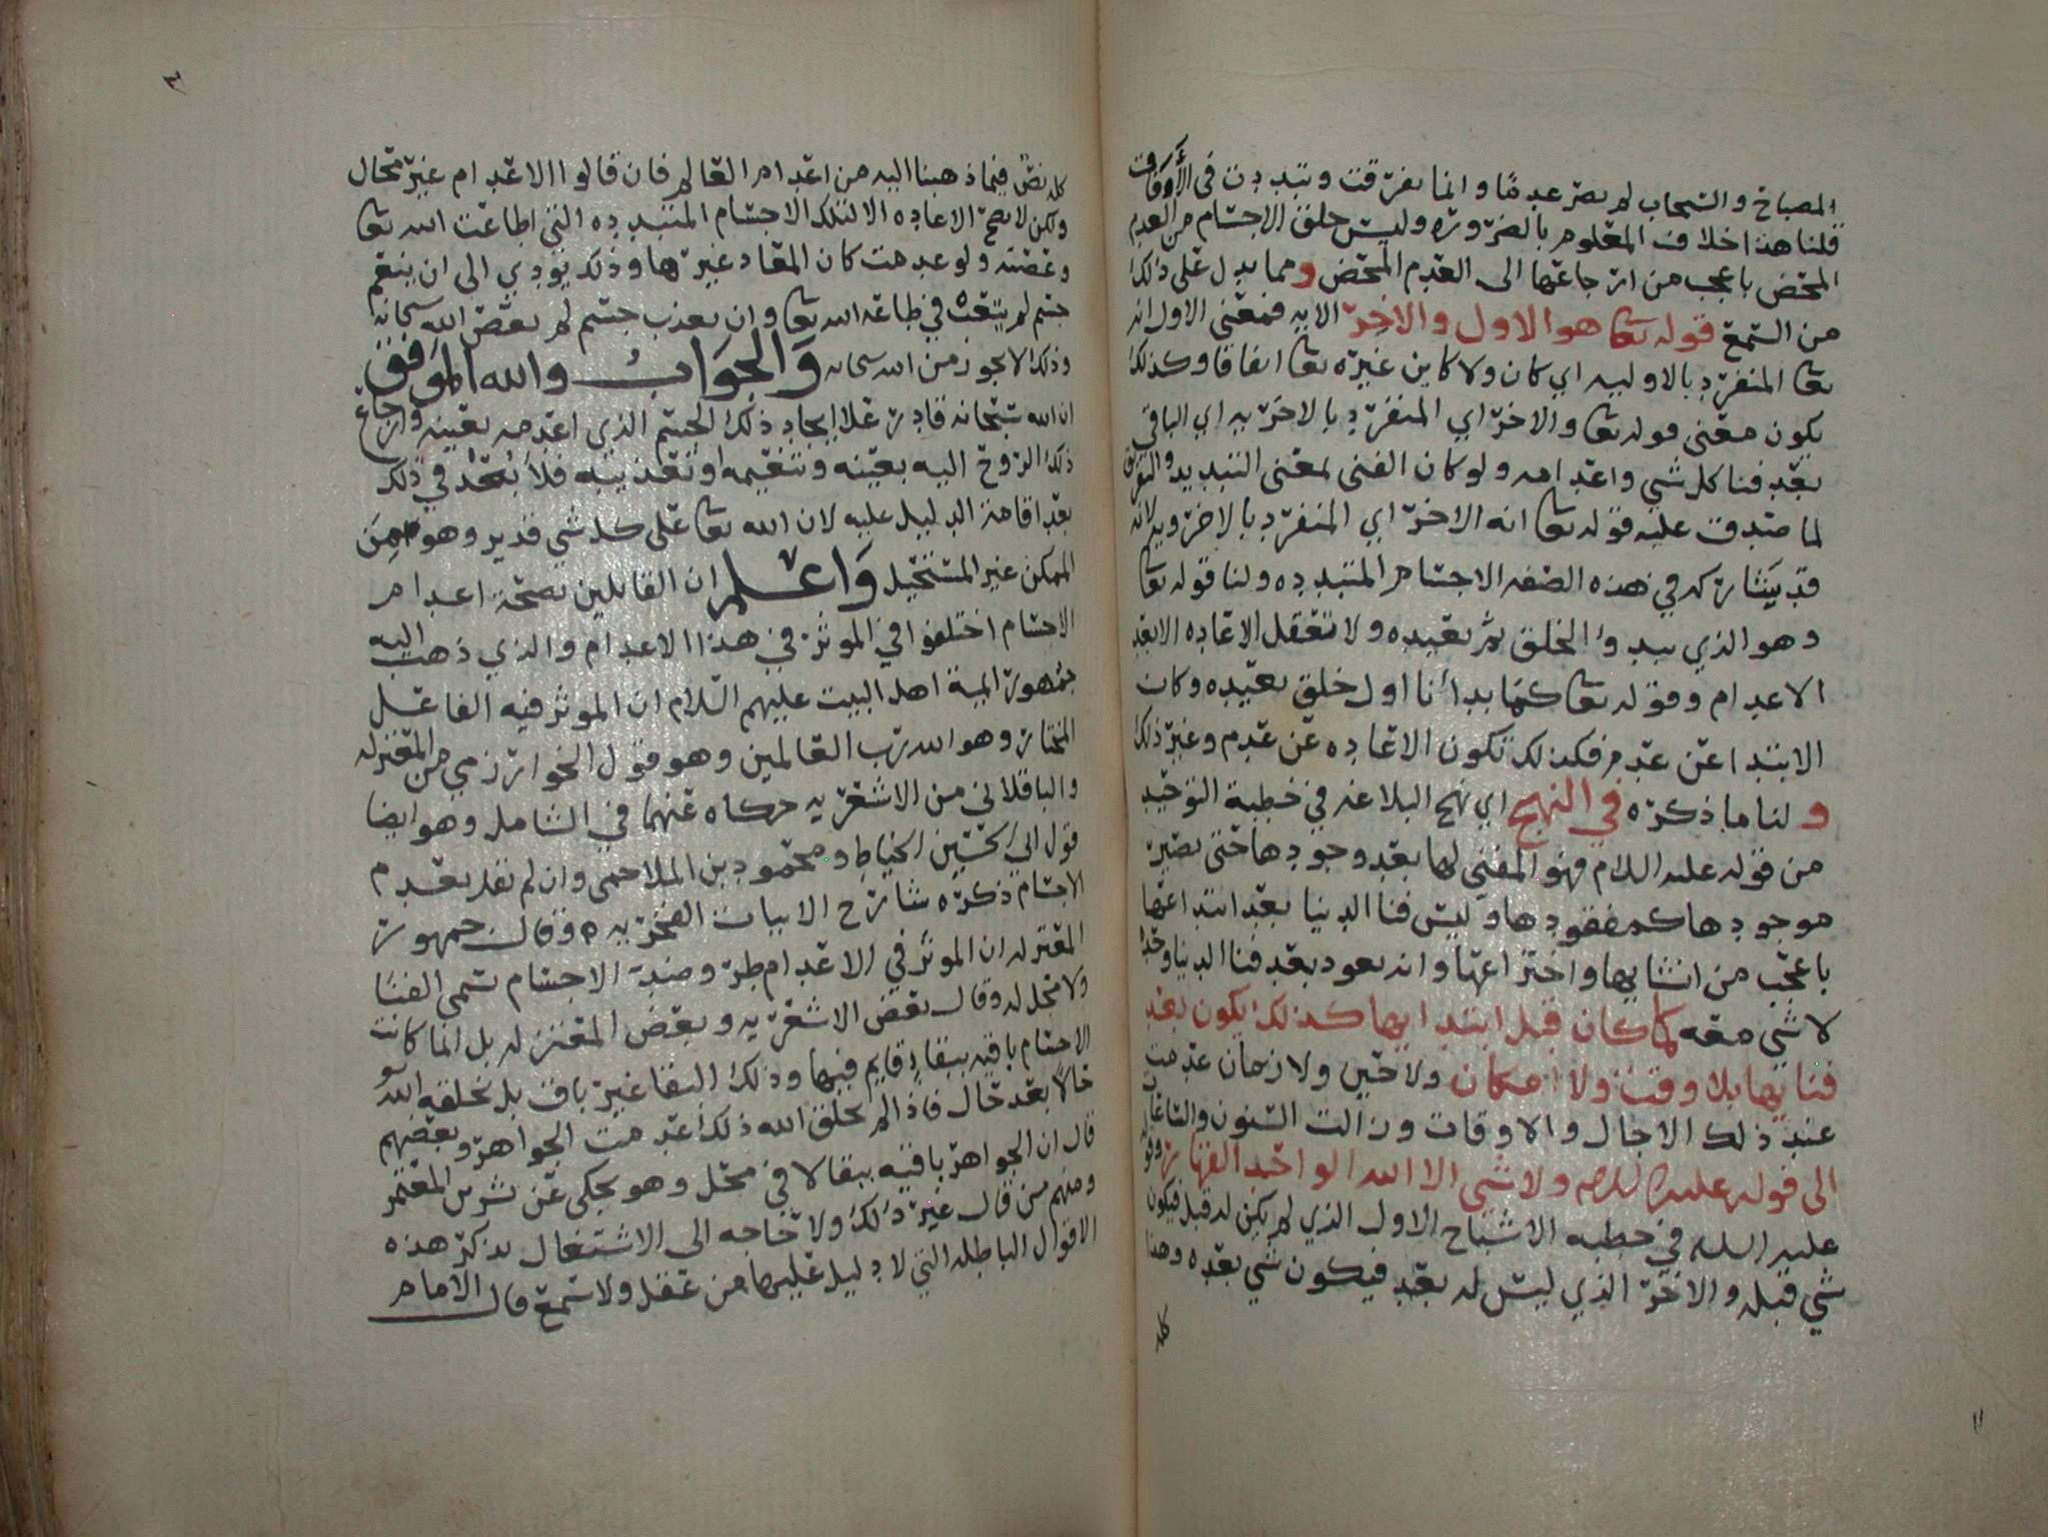 المصباح والسحاب لم يصر عدما وانما تفرقت وتبددت في الأوقات
قلنا هذا خلاف المعلوم بالضرورة وليس خلق الاجسام من العدم
المحض باعجب من ارجاعها الى العدم المحض ومما يدل على ذلك
من السمع قوله تعا هو الاول والاخر الايه فمعنى الاول انه
تعا المنفرد بالاوليه اي كان ولا كاين غيره تعا اتفاقا وكذلك
يكون معنى قوله تعا والاخر اي المنفرد بالاخريه اي الباقي
بعد فنا كل شي واعدامه ولو كان الفنى بمعنى التبديد والتفريق
لما صدق عليه قوله تعا انه الاخر اي المنفرد بالاخرويه لانه
قد يشاركه في هذه الصفه الاجسام المتبدده ولنا قوله تعا
وهو الذي يبدؤ الخلق ثم يعيده ولا تعقل الاعاده الا بعد
الاعدام وقوله تعا كما بدأنا اول خلق نعيده وكان
الابتدا عن عدم فكذلك تكون الاعاده عن عدم وغير ذلك
ولنا ما ذكره في النهج اي نهج البلاغه في خطبة التوحيد
من قوله عليه السلام فهو المفني لها بعد وجودها حتى يصير
موجودها كمفقودها وليس فنا الدنيا بعد ابتداعها
باعجب من انشايها واختراعها وانه يعود بعد فنا الدنيا وحده
لا شي معه كما كان قبل ابتدايها كذلك يكون بعد
فنايها بلا وقت ولا مكان ولا حين ولا زمان عدمت
عند ذلك الاجال والاوقات وزالت السنون والساعات
الى قوله عليه السلام ولا شي الا الله الواحد القهار وقوله
عليه السلم في خطبه الاشباح الاول الذي لم يكن له قبل فيكون
شي قبله والاخر الذي ليس له بعد فيكون شي بعده وهذا
كله
١١
٣
كله نص فيما ذهبنا اليه من اعدام العالم فان قالوا الاعدام غير محال
ولكن لا يصح الاعاده الا لتلك الاجسام المتبدده التي اطاعت الله تعا
وعصته ولو عدمت كان المعاد غيرها وذلك يودي الى ان ينعم
جسم لم يتعب في طاعة الله تعا وان يعذب جسم لم يعص الله سبحانه
وذلك لا يجوز من الله سبحانه والجواب والله الموفق
ان الله سبحانه قادر علا ايجاد ذلك الجسم الذي اعدمه بعينه وارجاع
ذلك الروح اليه بعينه وتنعيمه او تعذيبه فلا بعد في ذلك
بعد اقامة الدليل عليه لان الله تعا على كل شي قدير وهو من
الممكن غير المستحيل واعلم ان القايلين بصحة اعدام
الاجسام اختلفوا في الموثر في هذا الاعدام والذي ذهب اليه
جمهور ايمة اهل البيت عليهم السلام ان الموثر فيه الفاعل
المختار وهو الله رب العالمين وهو قول الخوارزمي من المعتزله
والباقلاني من الاشعريه حكاه عنهما في الشامل وهو ايضا
قول ابي الحسين الخياط ومحمود بن الملاحمي وان لم نقل بعدم
الاجسام ذكره شارح الابيات الفخريه ه وقال جمهور
المعتزله ان الموثر في الاعدام طرو ضد الاجسام تسمى الفنا
ولا محل له وقال بعض الاشعريه وبعض المعتزله بل انما كانت
الاجسام باقيه ببقاء قايم فيها وذلك البقا غير باق بل يخلقه الله
حالا بعد حال فاذا لم يخلق الله ذلك عدمت الجواهر وبعضهم
قال ان الجواهر باقيه ببقا لا في محل وهو يحكى عن بشر بن المعتمر
ومنهم من قال غير ذلك ولا حاجه الى الاشتغال بذكر هذه
الاقوال الباطله التي لا دليل عليها من عقل ولا سمع قال الامام